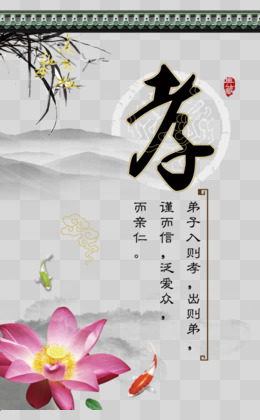 孝
弟子入则孝，出则弟，
谨而信，泛爱众，
而亲仁。